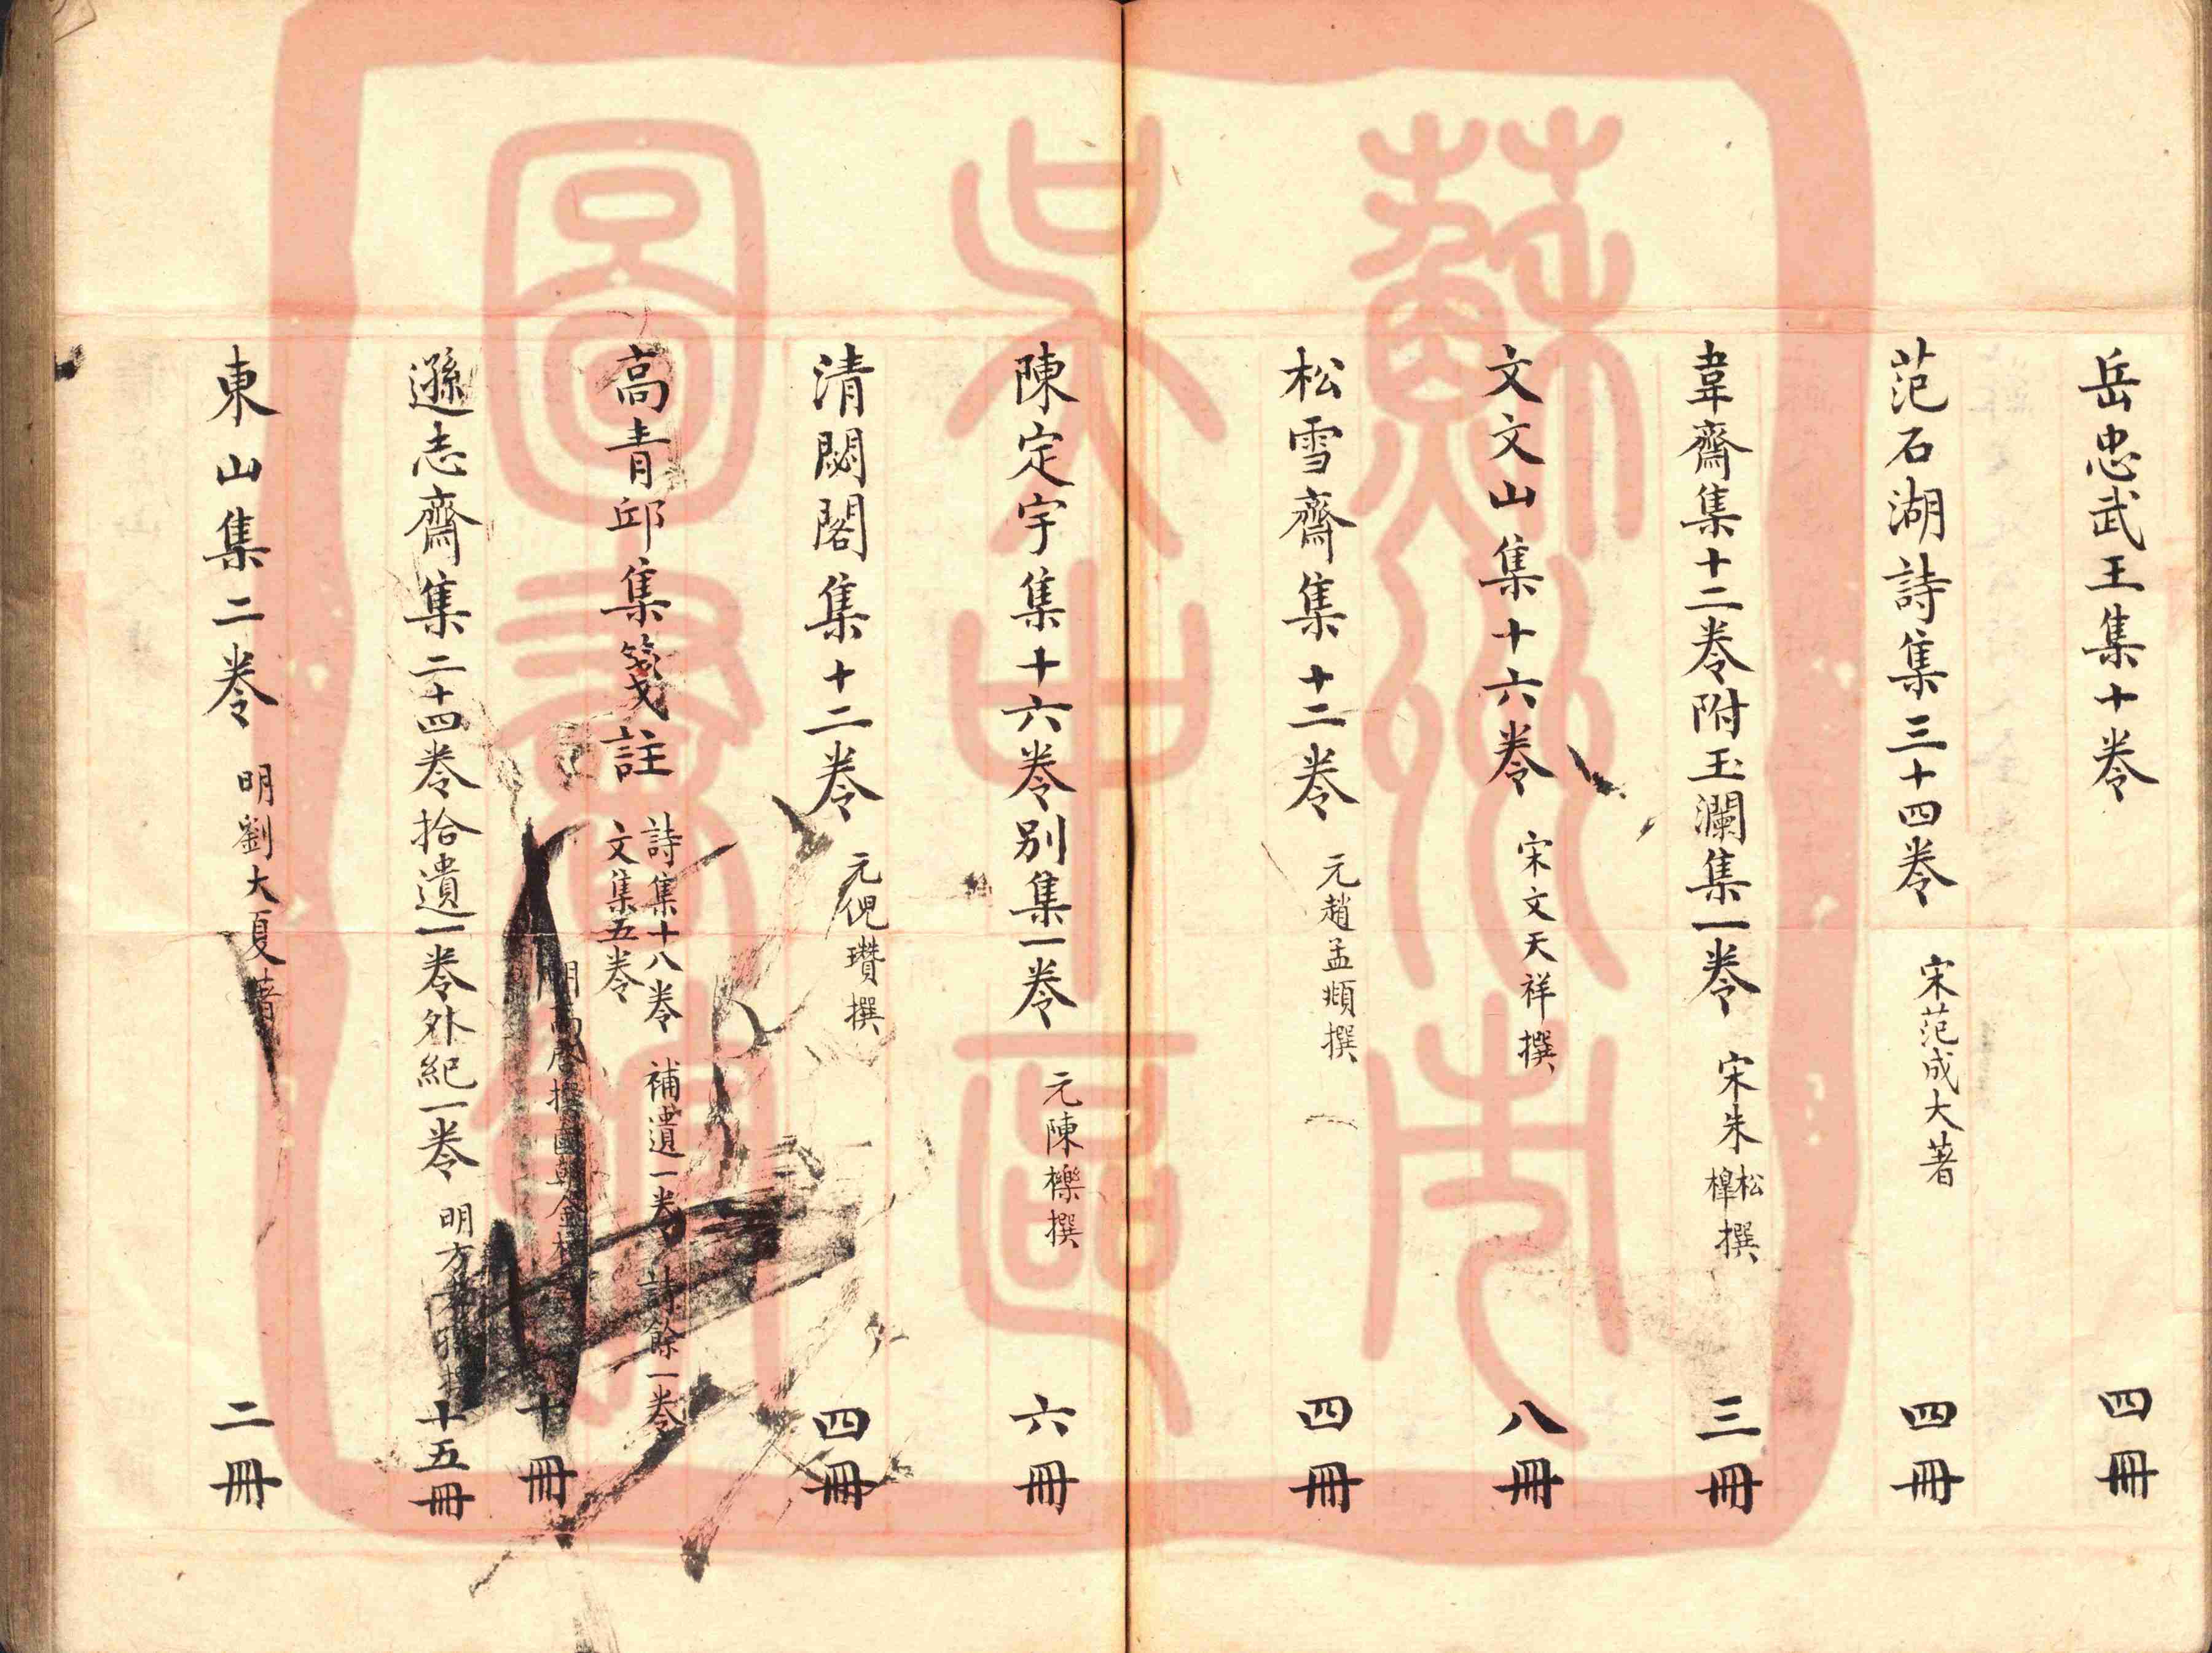 岳忠武王集十卷 四冊
范石湖詩集三十四卷 宋范成大著 四冊
韋齋集十二卷附玉瀾集一卷 宋朱松槔撰 三冊
文文山集十六卷 宋文天祥撰 八冊
松雪齋集十二卷 元趙孟頫撰 四冊
陳定宇集十六卷別集一卷 元陳櫟撰 六冊
清閟閣集十二卷 元倪瓚撰 四冊
高青邱集箋註 詩集十八卷 補遺一卷 詩餘一卷
文集五卷
明高啓撰國朝金 十冊
遜志齋集二十四卷拾遺一卷外紀一卷 明方孝孺 十五冊
東山集二卷 明劉大夏著 二冊
蘇州市
吳中區
圖書館